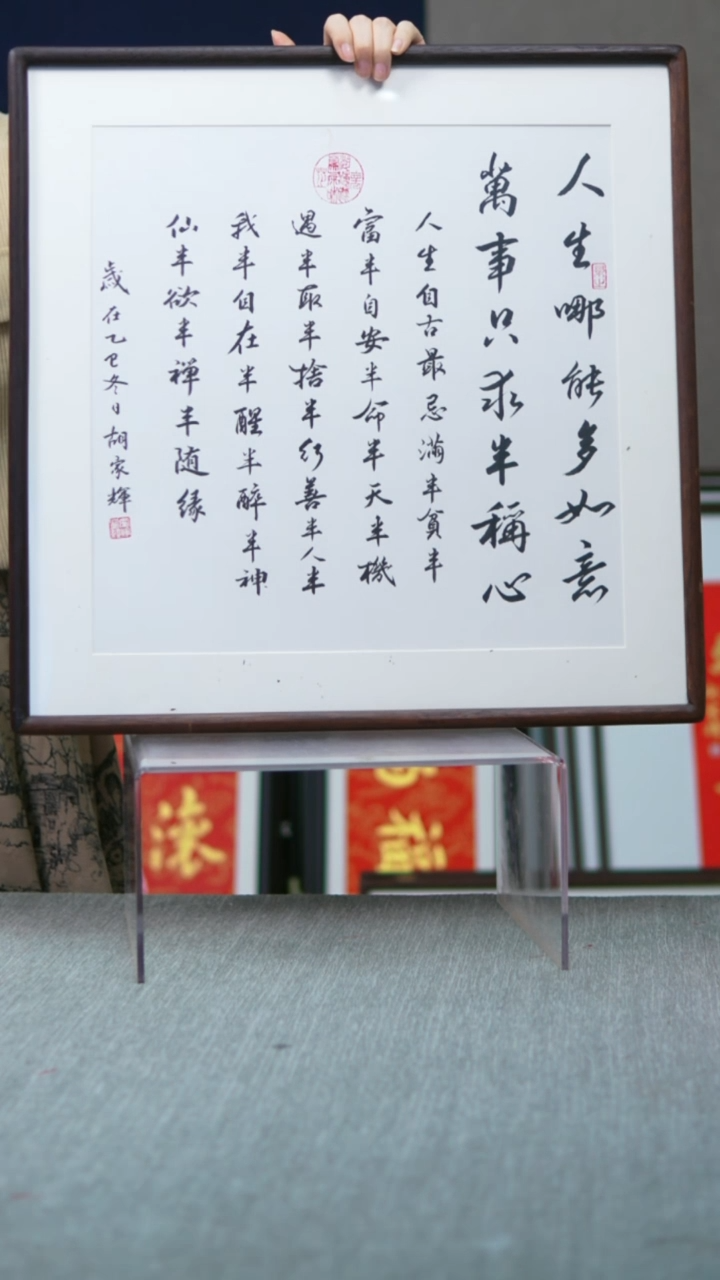 人生哪能多如意
萬事只求半稱心
人生自古最忌滿半貧半
富半自安半命半天半機
遇半取半捨半行善半人半
我半自在半醒半醉半神
仙半欲半禪半随緣
歲在乙巳冬日胡家輝
滚
福